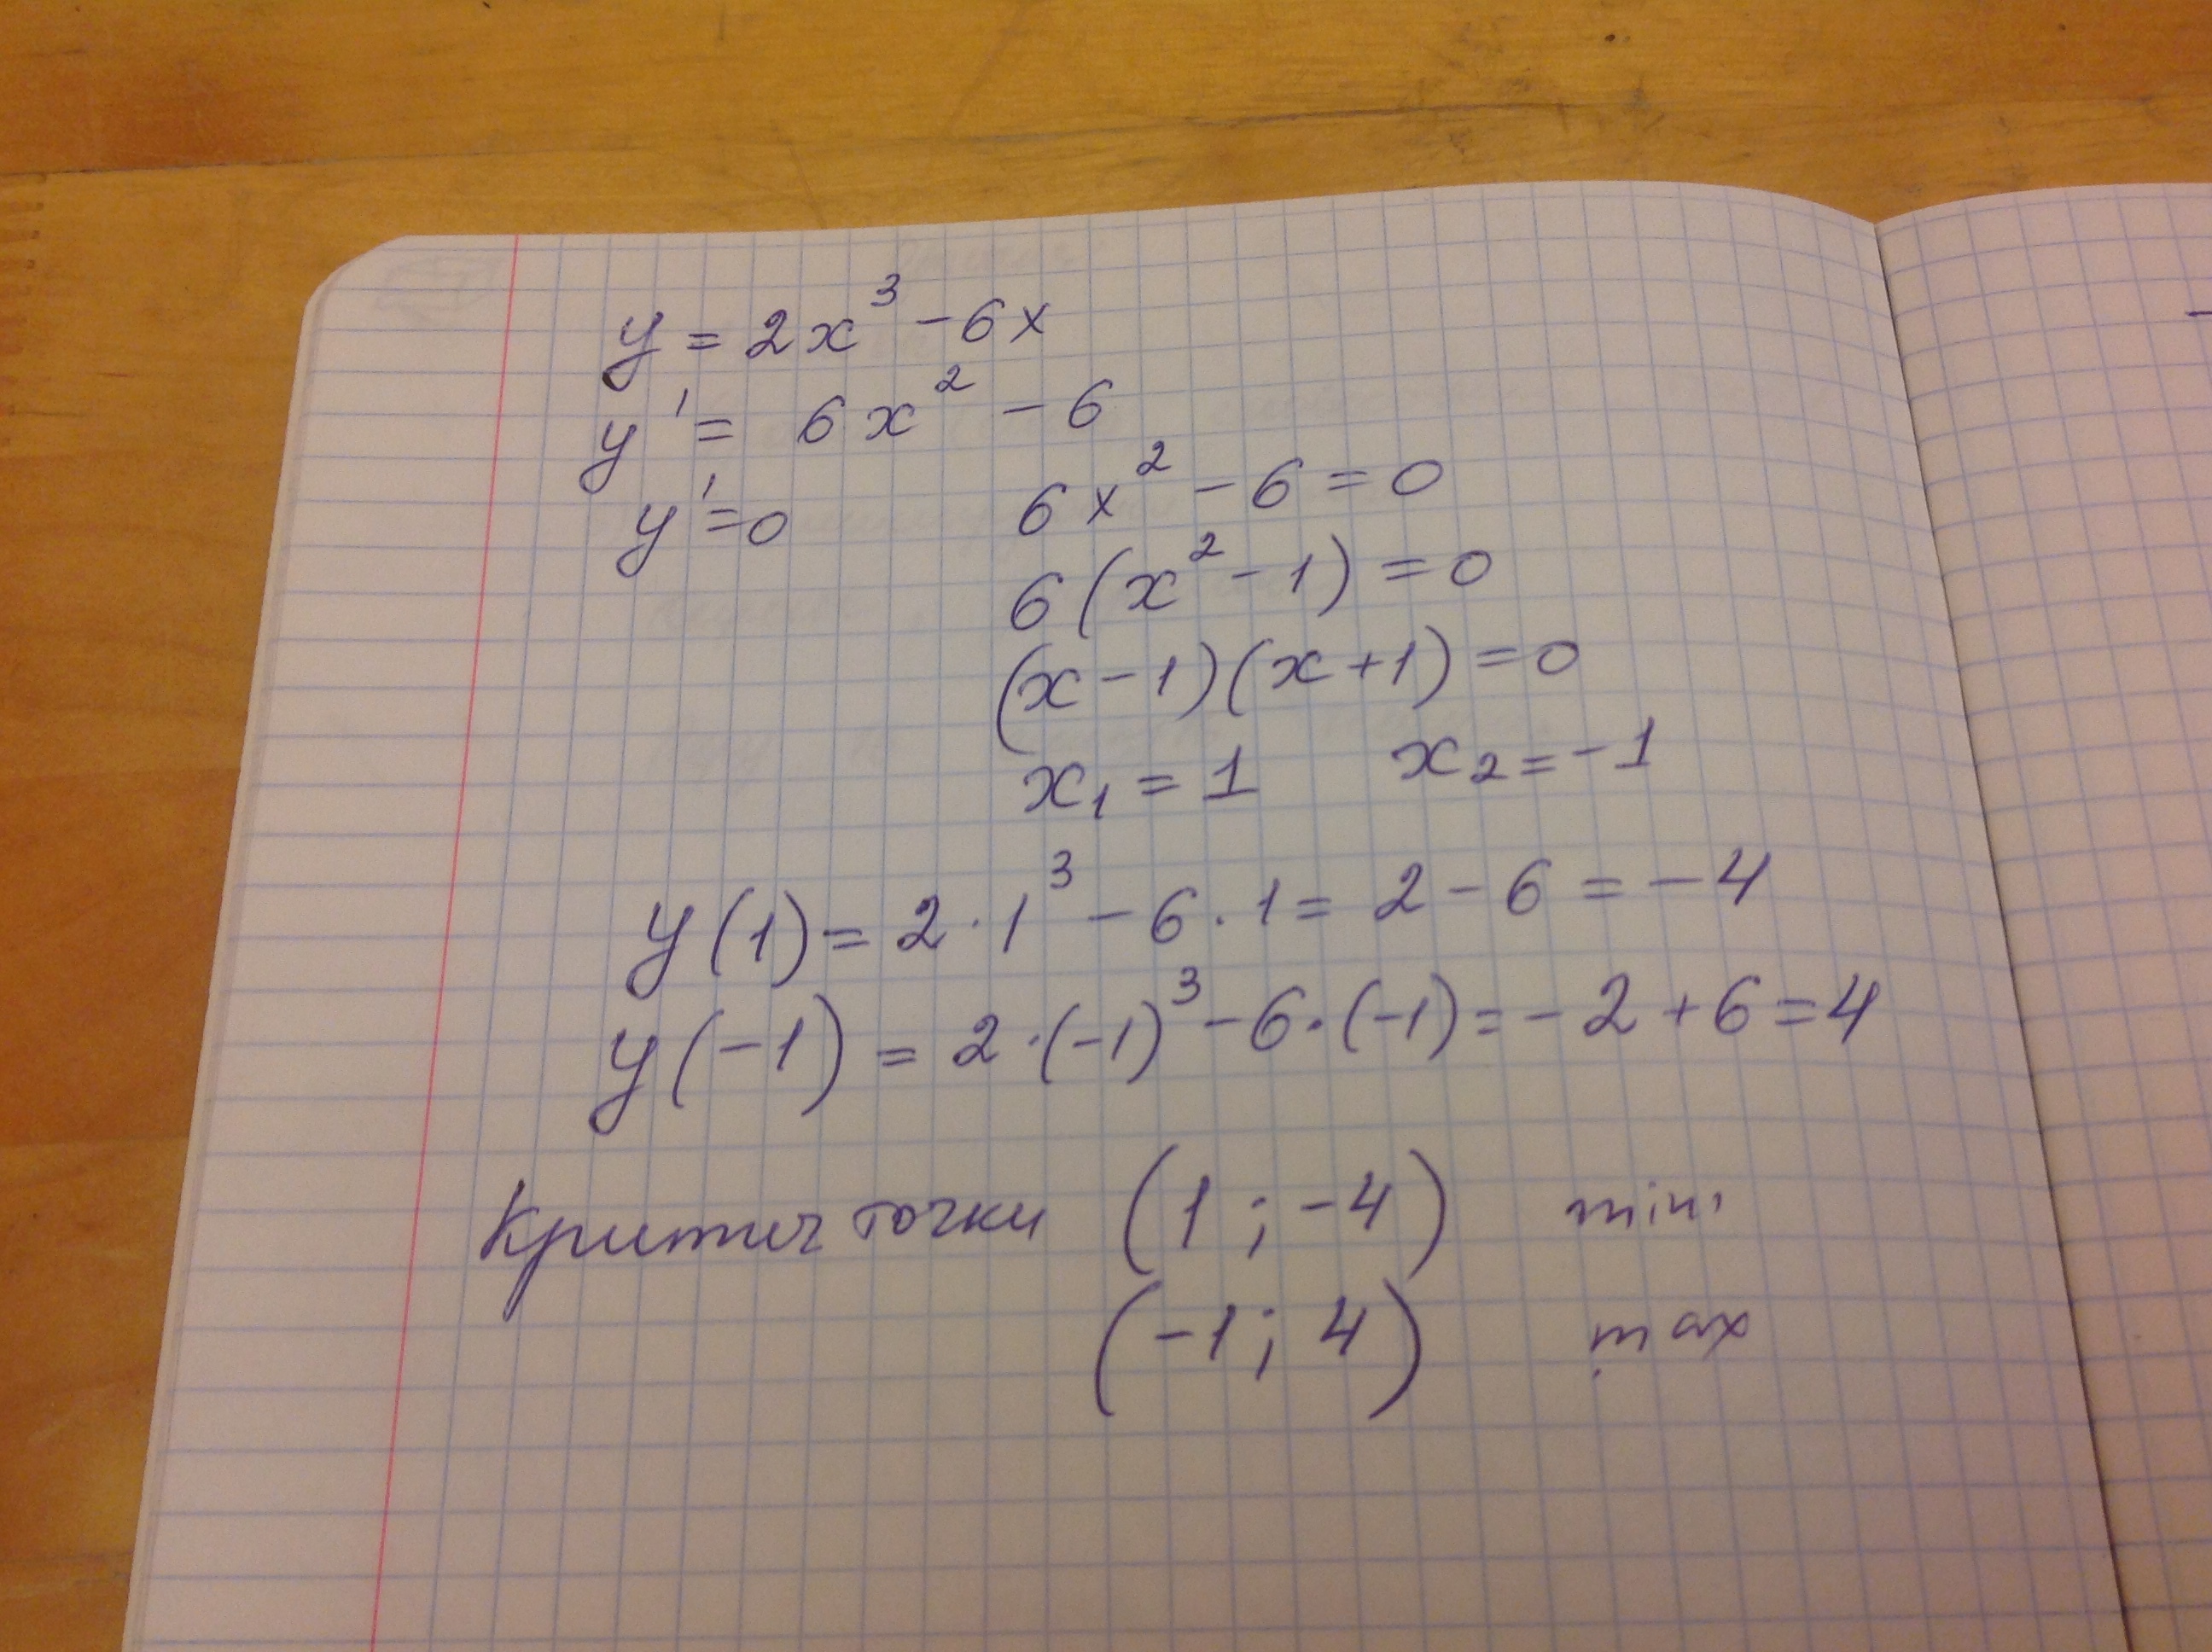 y = 2x³ - 6x
y' = 6x² - 6
y' = 0 6x² - 6 = 0
6(x² - 1) = 0
(x - 1)(x + 1) = 0
x₁ = 1 x₂ = -1
y(1) = 2 · 1³ - 6 · 1 = 2 - 6 = -4
y(-1) = 2 · (-1)³ - 6 · (-1) = -2 + 6 = 4
Критич точки (1 ; -4) min
(-1 ; 4) max